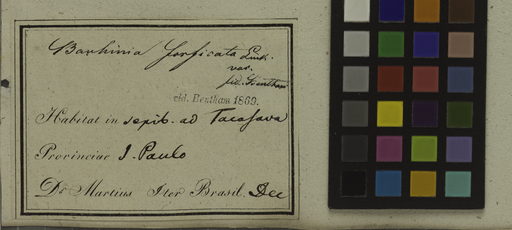 Bauhinia forficata Link.
var.
fid. Bentham
vid. Bentham 1869.
Habitat in sepib. ad Tacasava
Provinciae S. Paulo
Dr Martius Iter Brasil. Dec